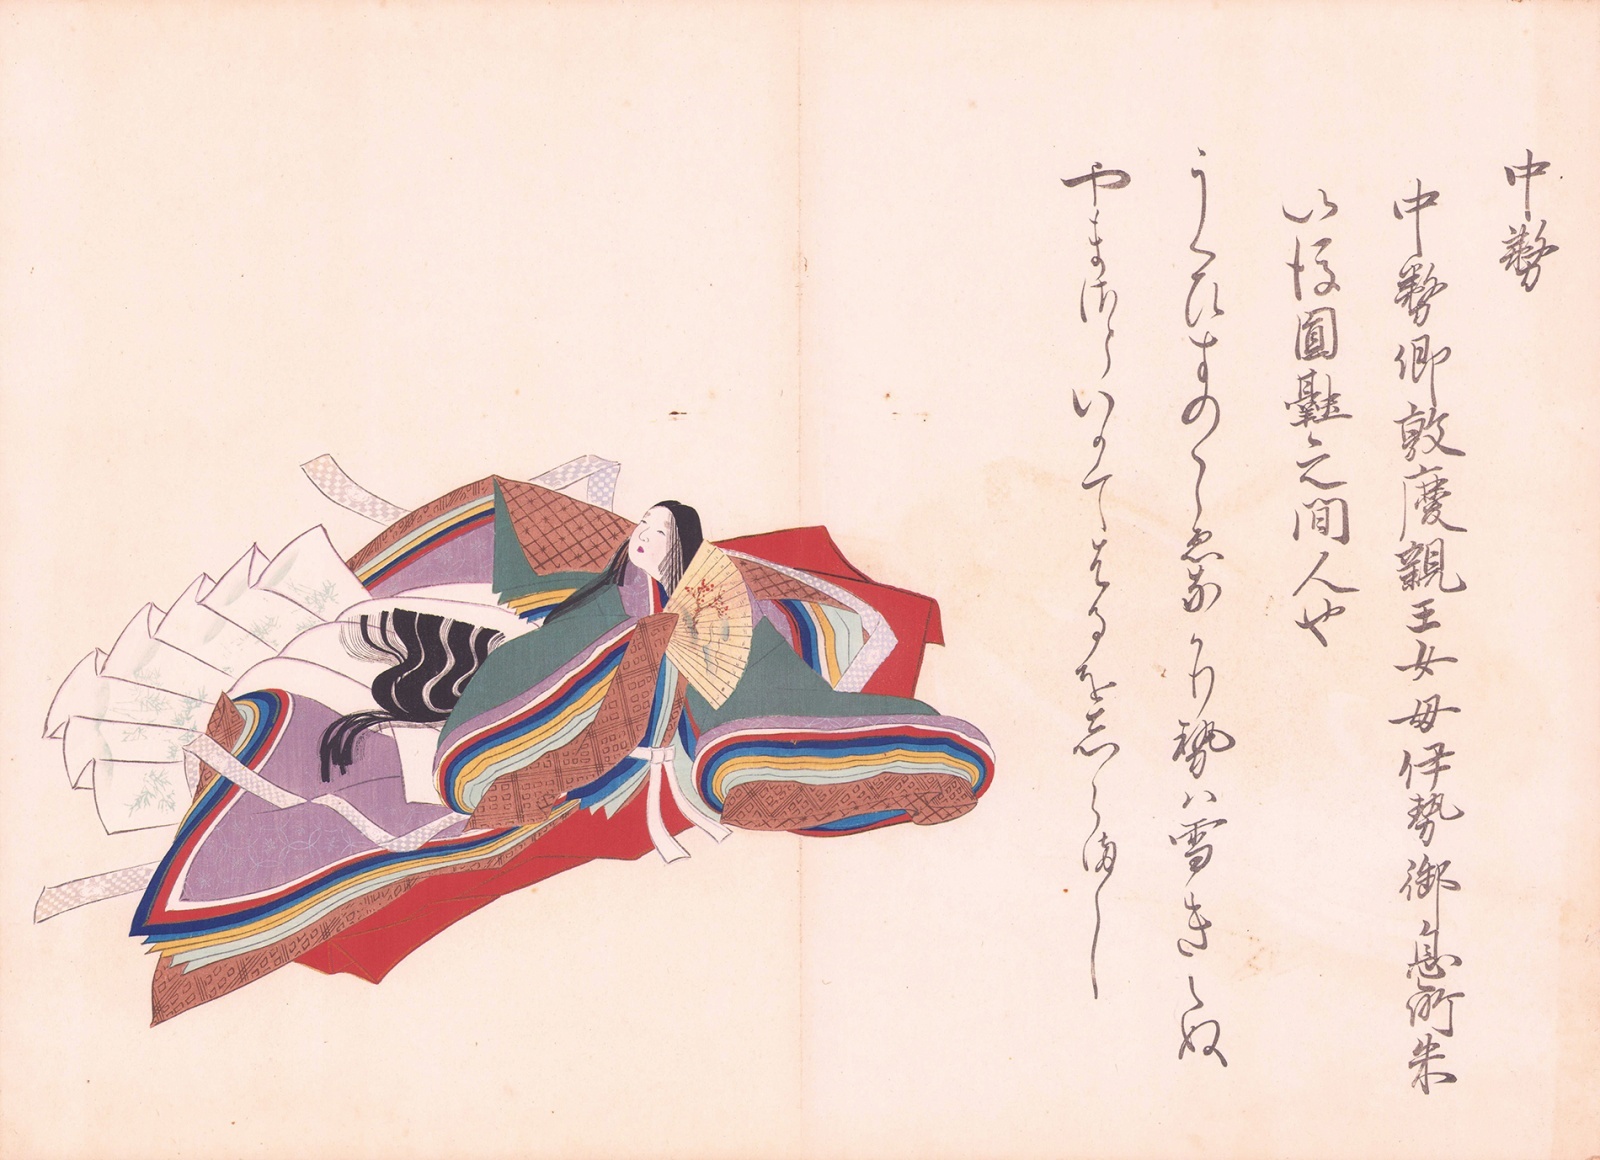 中務
中務卿敦慶親王女母伊勢御息所朱
以後圓融之間人也
うくひすのこゑなかりせは雪きえぬ
やまさといかてはるをしらまし